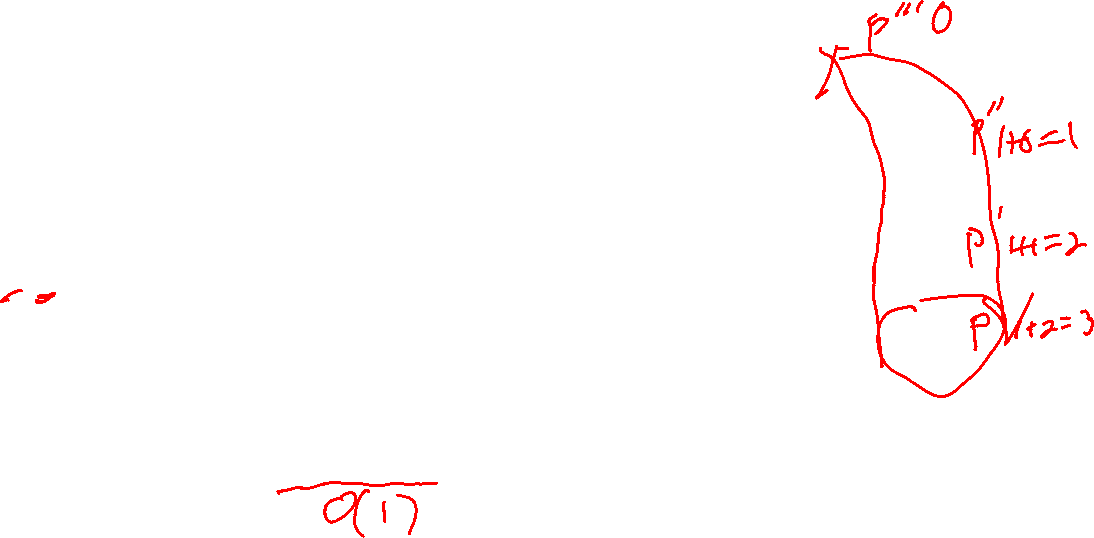 P''' 0
P'' 1+0=1
P' 1+1=2
P 1+2=3
O(1)